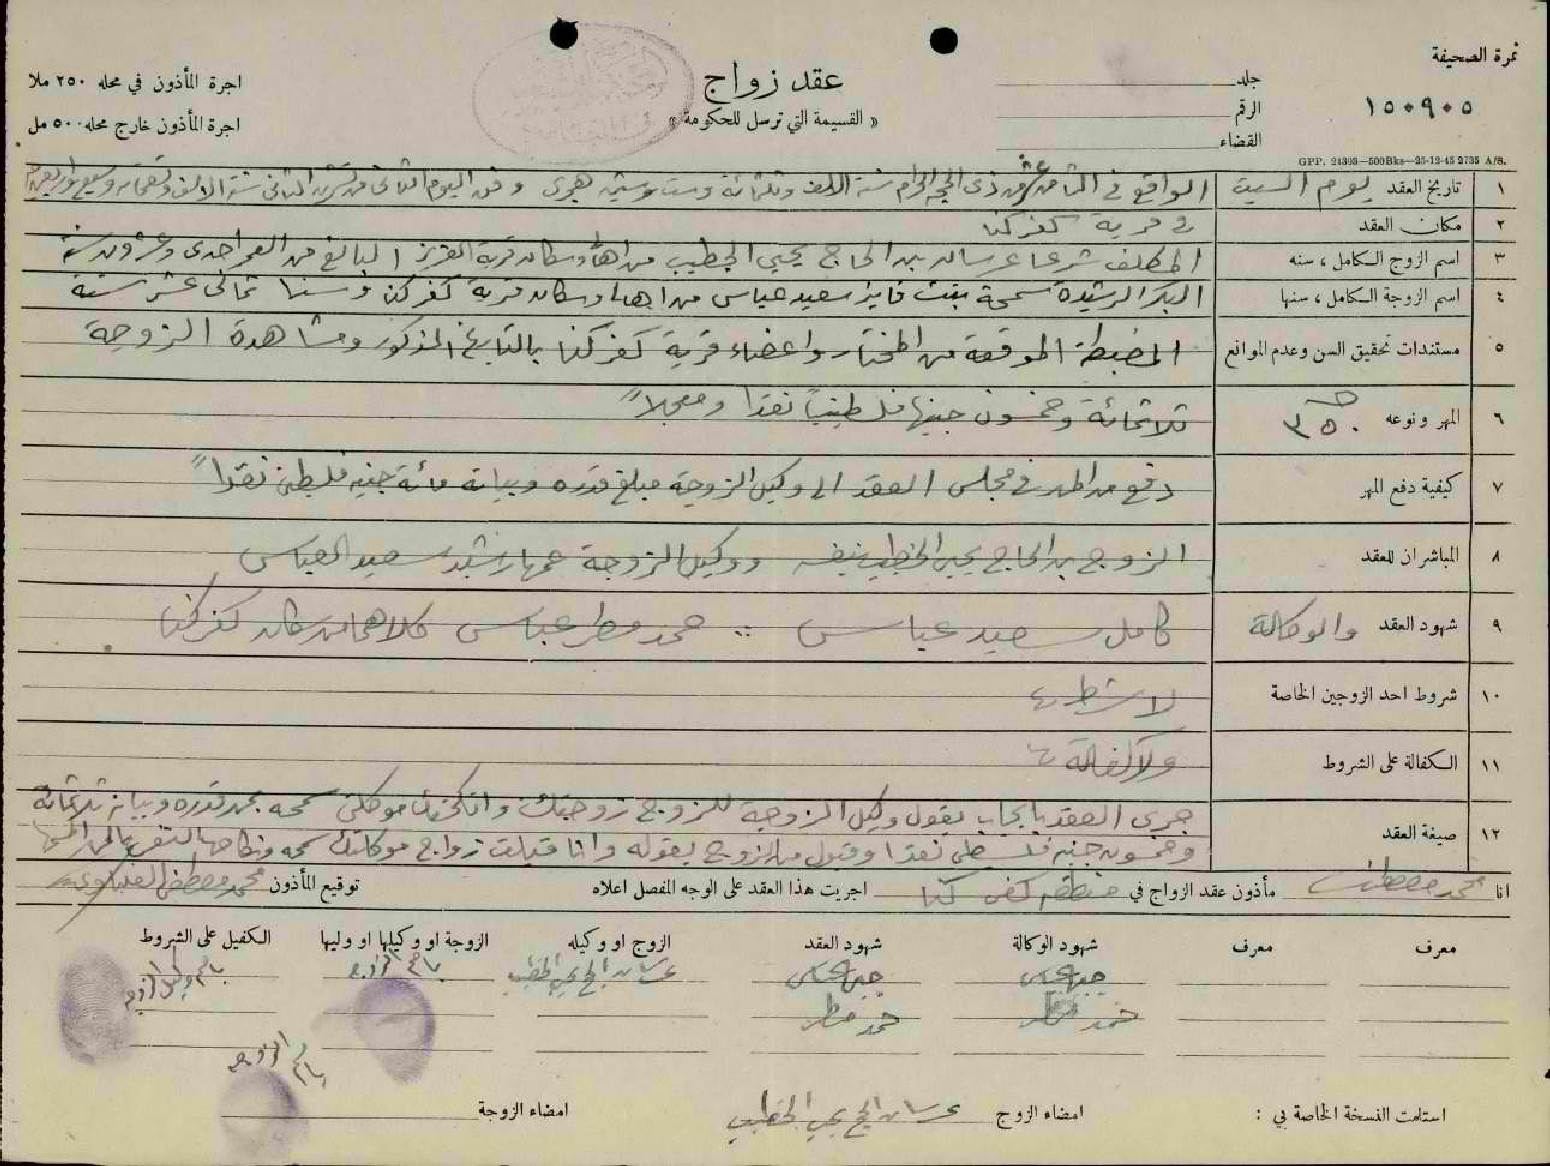 نمرة الصحيفة
١٥٠٩٠٥
جلد
الرقم
القضاء
عقد زواج
« القسيمة التي ترسل للحكومة »
اجرة المأذون في محله ٢٥٠ ملا
اجرة المأذون خارج محله ٥٠٠ مل
GPP. 24393—500Bks—25-12-45 2735 A/S.
١ تاريخ العقد يوم السبت الواقع في الثامن عشر من ذي الحجة الحرام سنة الالف وثلثمائة وست وستين هجري وفي اليوم الثاني من تشرين الثاني سنة الالف وتسعمائة
٢ مكان العقد في قرية كفركنا
٣ اسم الزوج الكامل ، سنه المكلف شرعا عرسان بن الحاج يحيى الخطيب من اهالي وسكان قرية العزيز البالغ من العمر احدى وعشرون سنة
٤ اسم الزوجة الكامل ، سنها البكر الرشيدة سمحة بنت فايز سعيد عباس من اهالي وسكان قرية كفركنا وسنها ثماني عشر سنة
٥ مستندات تحقيق السن وعدم الموانع المضبطة الموقعة من المختار واعضاء قرية كفركنا بالتاريخ المذكور ومشاهدة الزوجة
٦ المهر ونوعه ٣٥٠ ثلاثمائة وخمسون جنيها فلسطينياً نقدا ومعجلاً
٧ كيفية دفع المهر دفع من المهر في مجلس العقد الى وكيل الزوجة مبلغ قدره وبيانه مائة جنيه فلسطيني نقداً
٨ المباشران للعقد الزوج بن الحاج يحيى الخطيب بنفسه ووكيل الزوجة عمها رشيد سعيد العباس
٩ شهود العقد والوكالة كامل سعيد عباس :: حمد مطر عباس كلاهما من سكان كفركنا
١٠ شروط احد الزوجين الخاصة لا شرط
١١ الكفالة على الشروط ولا كفالة
١٢ صيغة العقد جرى العقد بايجاب بقول وكيل الزوجة للزوج زوجتك وانكحتك موكلتي سمحه بمهر قدره وبيانه ثلاثمائة
وخمسون جنيه فلسطيني نقدا وقبول من الزوج بقوله وانا قبلت زواج موكلتك سمحه ونكاحها لنفسي بالمهر المسمى
انا محمد مصطفى مأذون عقد الزواج في منطقة كفر كنا اجريت هذا العقد على الوجه المفصل اعلاه توقيع المأذون محمد مصطفى
معرف
معرف
شهود الوكالة
شهود العقد
الزوج او وكيله
الزوجة او وكيلها او وليها
الكفيل على الشروط
عرسان الحاج يحيى الخطيب
حمد مطر
حمد مطر
استلمت النسخة الخاصة بي :
امضاء الزوج عرسان الحج يحيى الخطيب
امضاء الزوجة